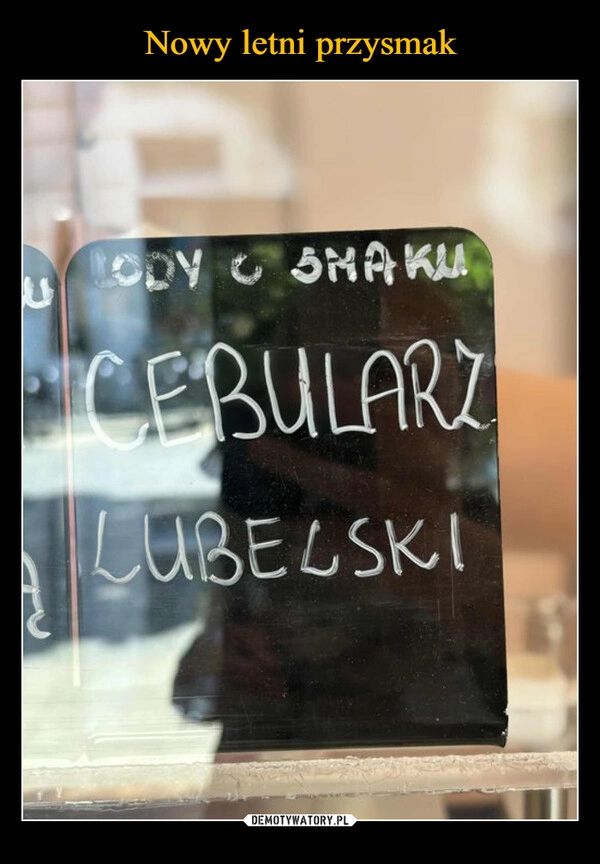 Nowy letni przysmak
U
LODY O SMAKU
CEBULARZ
Ą
LUBELSKI
DEMOTYWATORY.PL